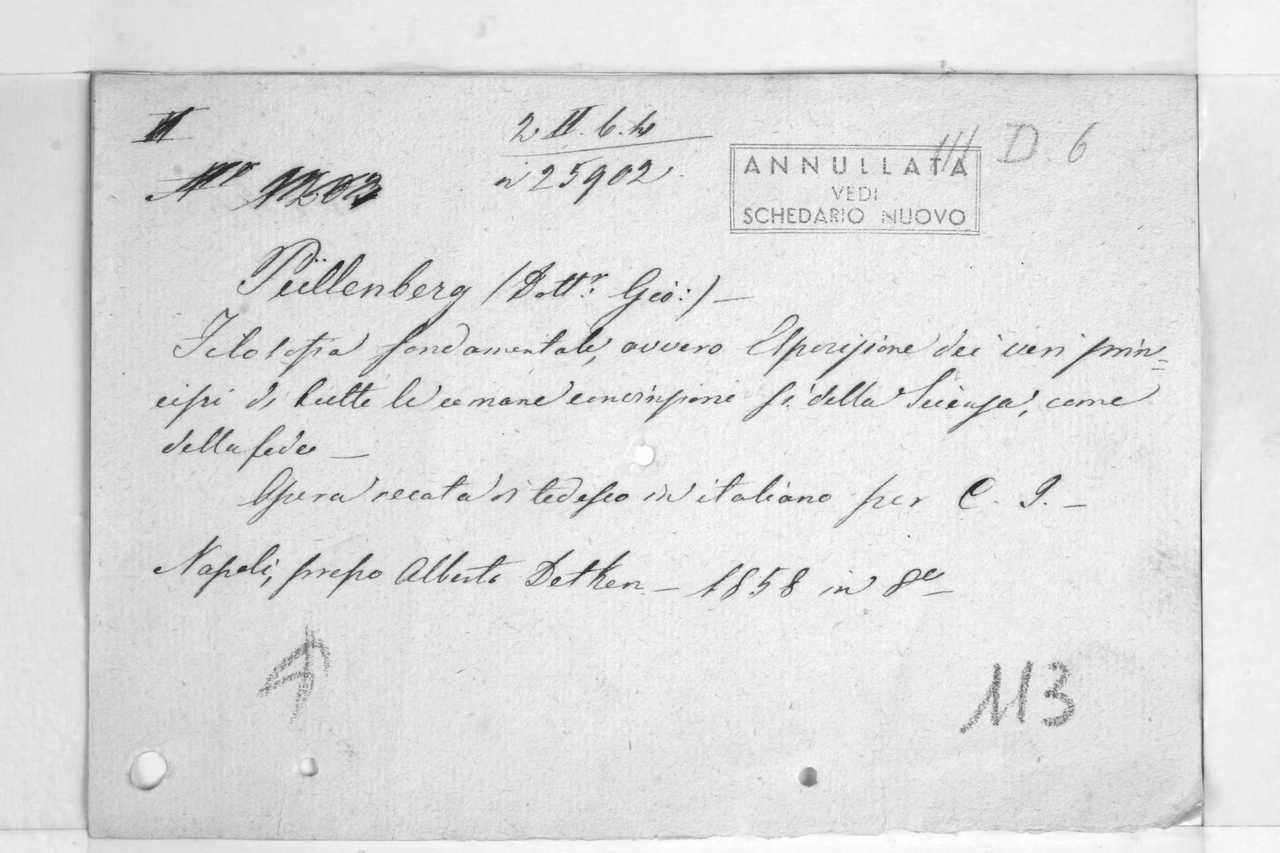 II
2 II. 6. 4
III D. 6
No 1203
n 25902
ANNULLATA
VEDI
SCHEDARIO NUOVO
Püllenberg (Dottr: Gio:) —
Filosofia fondamentale, ovvero Esposizione dei veri prin=
cipi di tutte le umane cognizioni sì della Scienza, come
della fede —
Opera recata di tedesco in italiano per C. I. —
Napoli, presso Alberto Detken — 1858 in 8º —
113